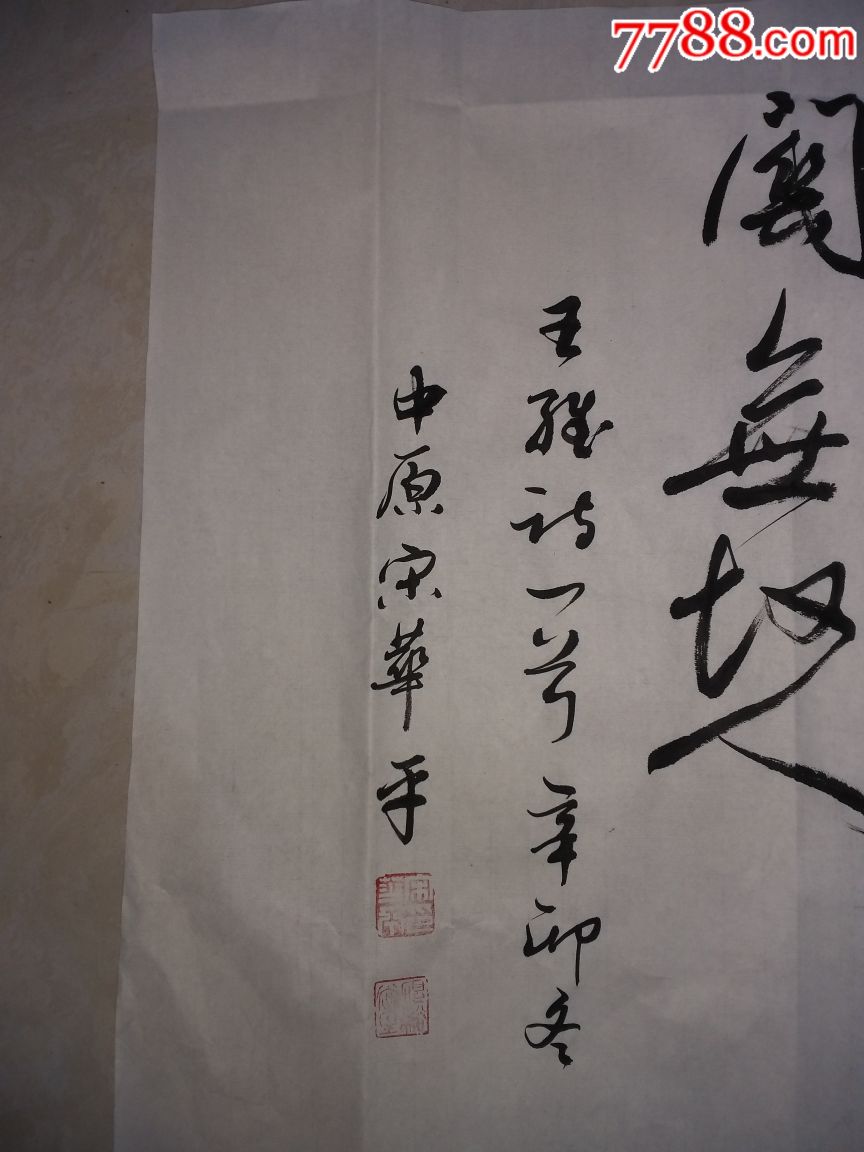 7788.com
關無故人
王維詩一首辛卯冬
中原宋華平